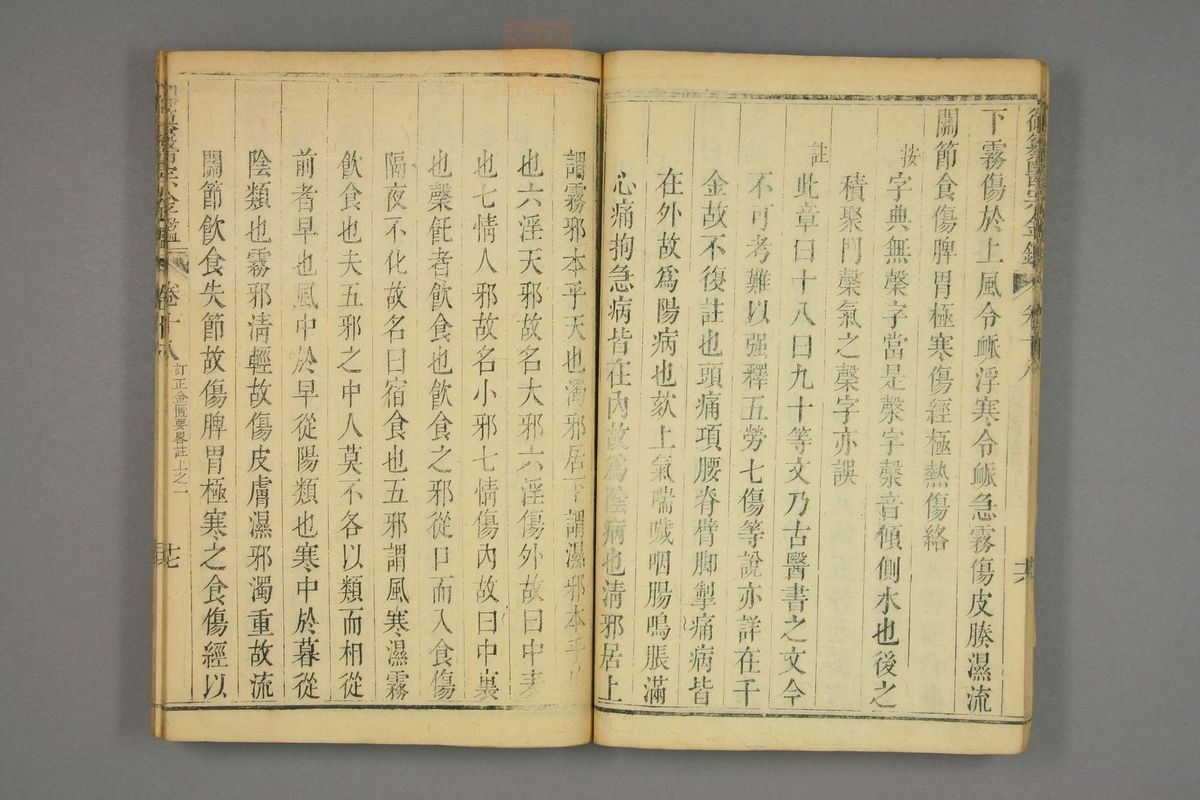 下霧傷於上風令脈浮寒令脈急霧傷皮腠濕流
關節食傷脾胃極寒傷經極熱傷絡
按字典無䅽字當是漀字漀音傾側水也後之
積聚門䅽氣之䅽字亦誤
註此章曰十八曰九十等文乃古醫書之文今
不可考難以强釋五勞七傷等說亦詳在千
金故不復註也頭痛項腰脊臂脚掣痛病皆
在外故爲陽病也欬上氣喘噦咽腸鳴脹滿
心痛拘急病皆在內故爲陰病也清邪居上
謂霧邪本乎天也濁邪居下謂濕邪本乎地
也六淫天邪故名大邪六淫傷外故曰中表
也七情人邪故名小邪七情傷內故曰中裏
也䅽飥者飲食也飲食之邪從口而入食傷
隔夜不化故名曰宿食也五邪謂風寒濕霧
飲食也夫五邪之中人莫不各以類而相從
前者早也風中於早從陽類也寒中於暮從
陰類也霧邪清輕故傷皮膚濕邪濁重故流
關節飲食失節故傷脾胃極寒之食傷經以
卷十八
訂正金匱要畧註上之一